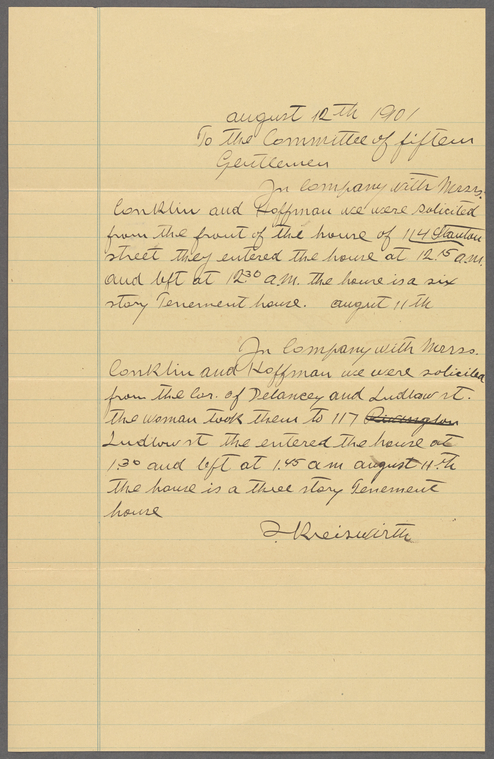 august 12th 1901
To the Committee of fifteen
Gentlemen
In Company with Messrs.
Conklin and Hoffman we were solicited
from the front of the house of 114 Stanton
street they entered the house at 12.15 a.m.
and left at 12 30 a.m. the house is a six
story Tenement house. august 11th
In Company with Messrs.
Conklin and Hoffman we were solicited
from the Cor. of Delancey and Ludlow st.
the woman took them to 117 Rivington
Ludlow st the entered the house at
1.30 and left at 1.45 a m august 11th
the house is a three story Tenement
house
J. Kreiswirth